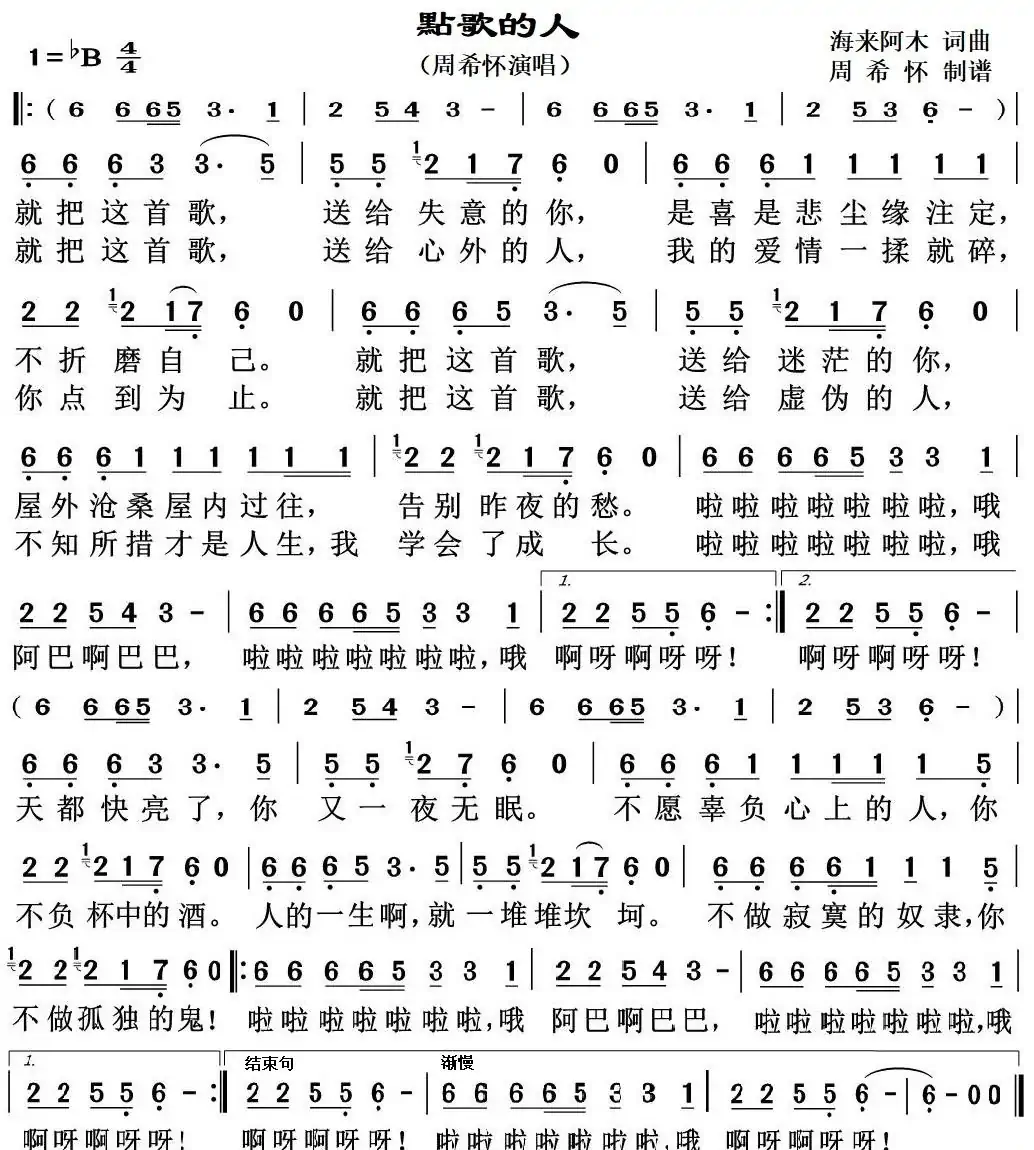 點歌的人
1=♭B 4/4
(周希怀演唱)
海来阿木 词曲
周 希 怀 制谱
‖: ( 6 6 6 5 3· 1 | 2 5 4 3 - | 6 6 6 5 3· 1 | 2 5 3 6 - ) |
6 6 6 3 3· 5 | 5 5 1 2 1 7 6 0 | 6 6 6 1 1 1 1 1 |
就把这首歌, 送给失意的你, 是喜是悲尘缘注定,
就把这首歌, 送给心外的人, 我的爱情一揉就碎,
2 2 1 2 1 7 6 0 | 6 6 6 5 3· 5 | 5 5 1 2 1 7 6 0 |
不折磨自己。 就把这首歌, 送给迷茫的你,
你点到为止。 就把这首歌, 送给虚伪的人,
6 6 6 1 1 1 1 1 1 | 1 2 2 1 2 1 7 6 0 | 6 6 6 6 5 3 3 1 |
屋外沧桑屋内过往, 告别昨夜的愁。 啦啦啦啦啦啦啦,哦
不知所措才是人生,我 学会了成长。 啦啦啦啦啦啦啦,哦
1. 2.
2 2 5 4 3 - | 6 6 6 6 5 3 3 1 | 2 2 5 5 6 - :‖ 2 2 5 5 6 - |
阿巴啊巴巴, 啦啦啦啦啦啦啦,哦 啊呀啊呀呀! 啊呀啊呀呀!
( 6 6 6 5 3· 1 | 2 5 4 3 - | 6 6 6 5 3· 1 | 2 5 3 6 - ) |
6 6 6 3 3· 5 | 5 5 1 2 7 6 0 | 6 6 6 1 1 1 1 1 5 |
天都快亮了,你 又一夜无眠。 不愿辜负心上的人,你
2 2 1 2 1 7 6 0 | 6 6 6 5 3· 5 | 5 5 1 2 1 7 6 0 | 6 6 6 6 1 1 1 5 |
不负杯中的酒。 人的一生啊,就一堆堆坎坷。 不做寂寞的奴隶,你
1 2 2 1 2 1 7 6 0 ‖: 6 6 6 6 5 3 3 1 | 2 2 5 4 3 - | 6 6 6 6 5 3 3 1 |
不做孤独的鬼! 啦啦啦啦啦啦啦,哦 阿巴啊巴巴, 啦啦啦啦啦啦啦,哦
1. 结束句 渐慢
2 2 5 5 6 - :‖ 2 2 5 5 6 - | 6 6 6 6 5 3 3 1 | 2 2 5 5 6 - | 6 - 0 0 ‖
啊呀啊呀呀! 啊呀啊呀呀! 啦啦啦啦啦啦啦,哦 啊呀啊呀呀!